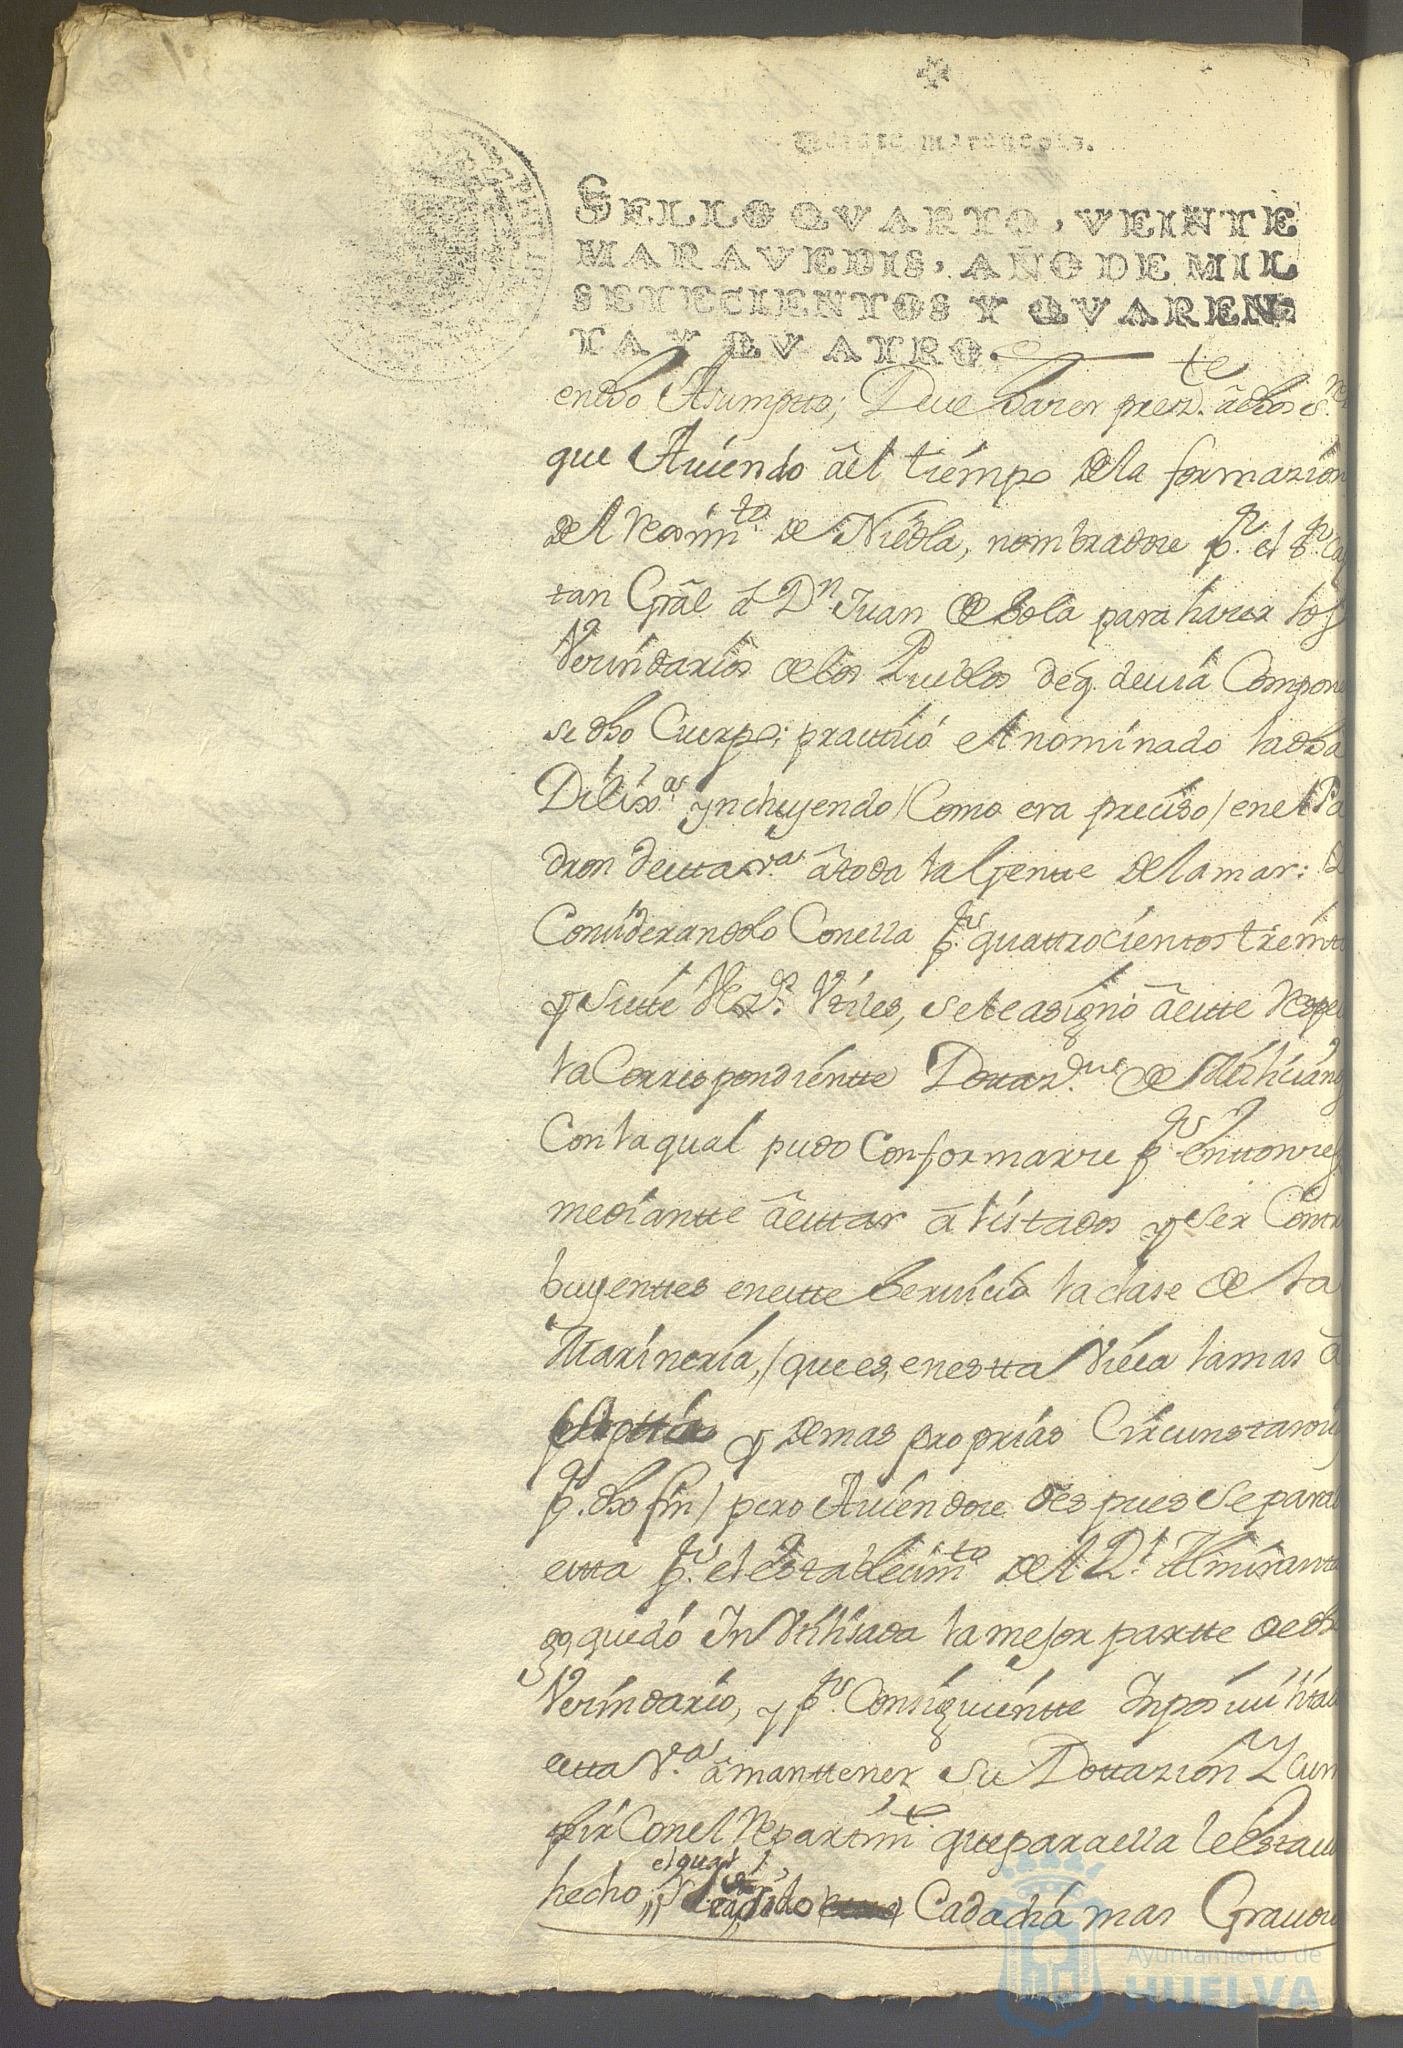 Veinte maravedis.
SELLO QVARTO, VEINTE
MARAVEDIS, AÑO DE MIL
SETECIENTOS Y QVAREN-
TA Y QVATRO.
en dho Asumpto; Deve hacer prezte. â dhos Sres
que Aviendo âel tiempo de la formazion
del reximto. de Niebla, nombradose pr. el Sr. Cap
tan Grâl â Dn. Juan de Sola para hacer los
Vecindarios de los Pueblos de q. devia Compone
se dho Cuerpo; practicó el nominado la dha
Dilixas. yncluyendo / Como era preciso / en el Pa
dron de esta va. â toda la Gente de la mar:
Considerandolo Con ella pr. quattrocientos treinta
y Siette Vezos. Vtiles, se le asignó â este respe
la Correspondiente Dotazn. de Milicianos
Con la qual pudo Conformarse pr. enttonces
mediantte âestar âlistados y ser Contr
buyenttes en este Servicio la clase de la
Marineria, / que es, en estta Villa la mas a
y demas proprias Circunstancia
pa. dho fin / pero Aviendose despues Separad
esta pr. el establecimto. del Rl. Almirantta
go, quedó Inutilisada la mejor partte de dh
Vecindario, y pr. Consiguientte Inposivilitad
esta Va. â manttener su Dottazion Y Cum
plir Con el Repartimto. que para ella le esta
el qual
hecho, Cada dia mas Gravos
Ayuntamiento de
HUELVA